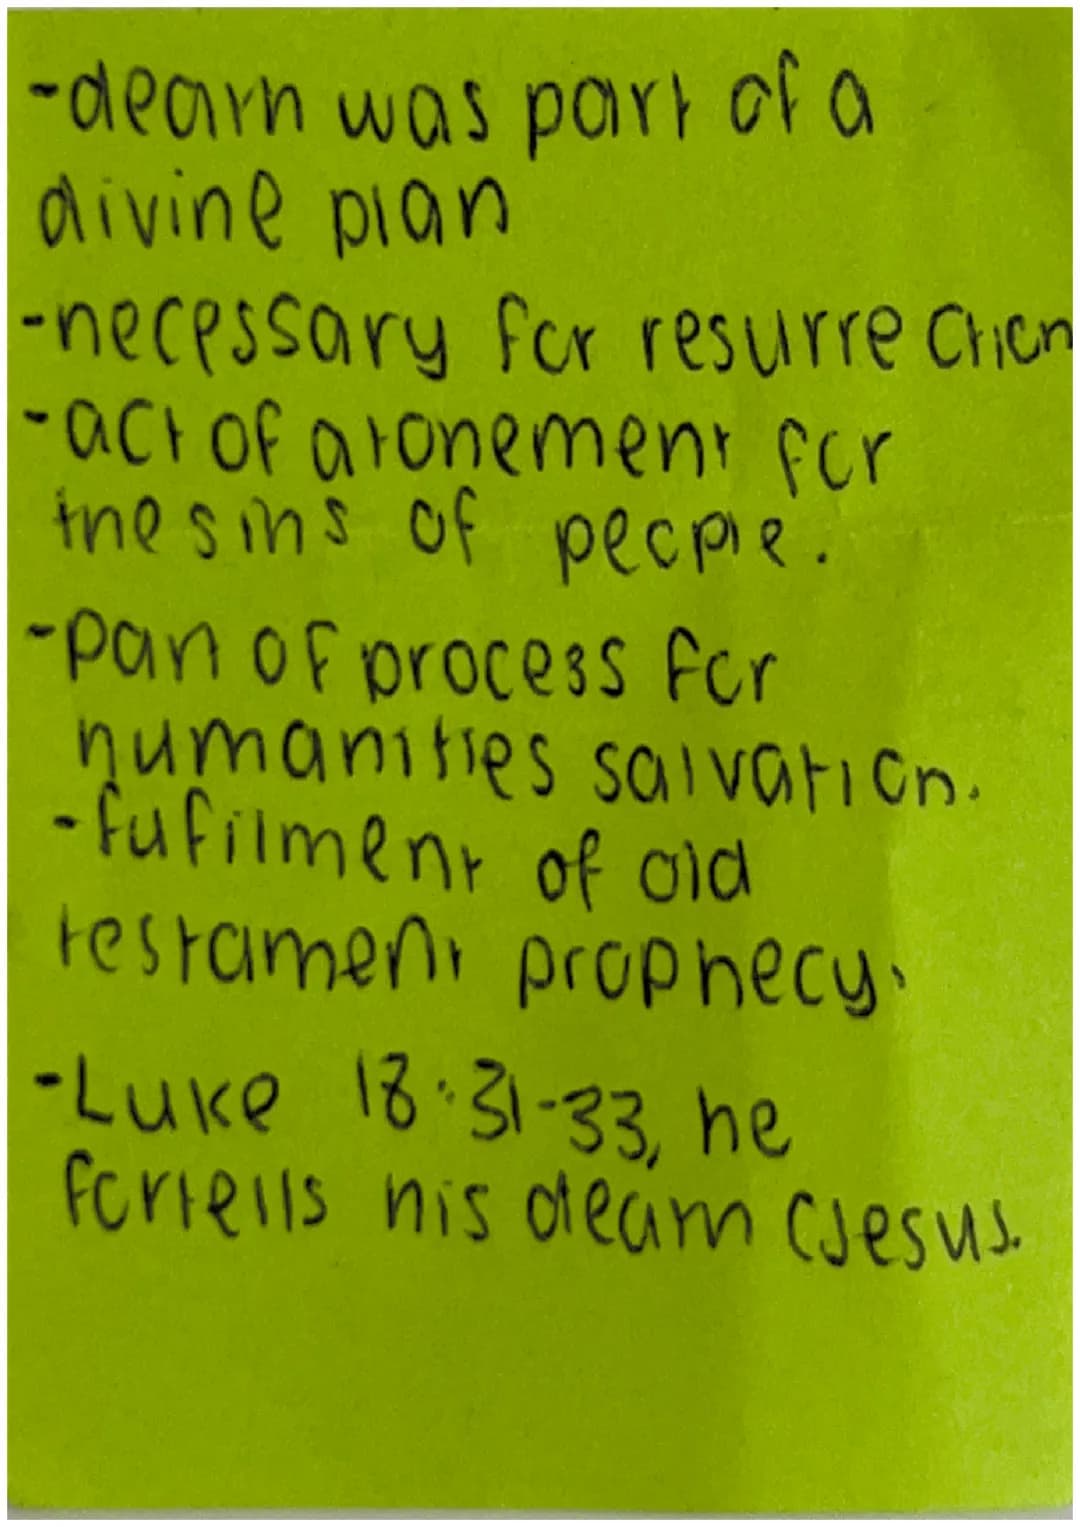 -death was part of a
divine plan
-necessary for resurrection
-act of atonement for
the sins of people.
-part of process for
humanities salvation.
-fufilment of old
testament prophecy.
-Luke 18:31-33, he
fortells his death (Jesus.